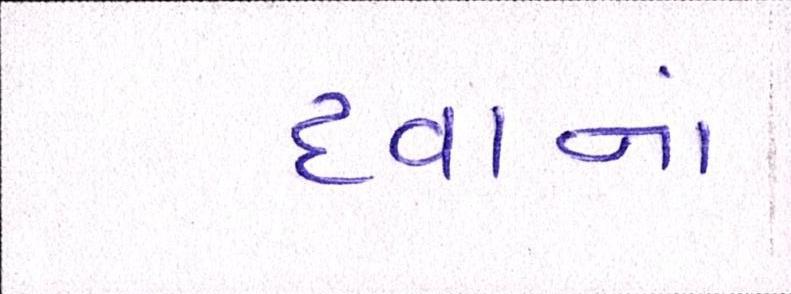 દવાનાં